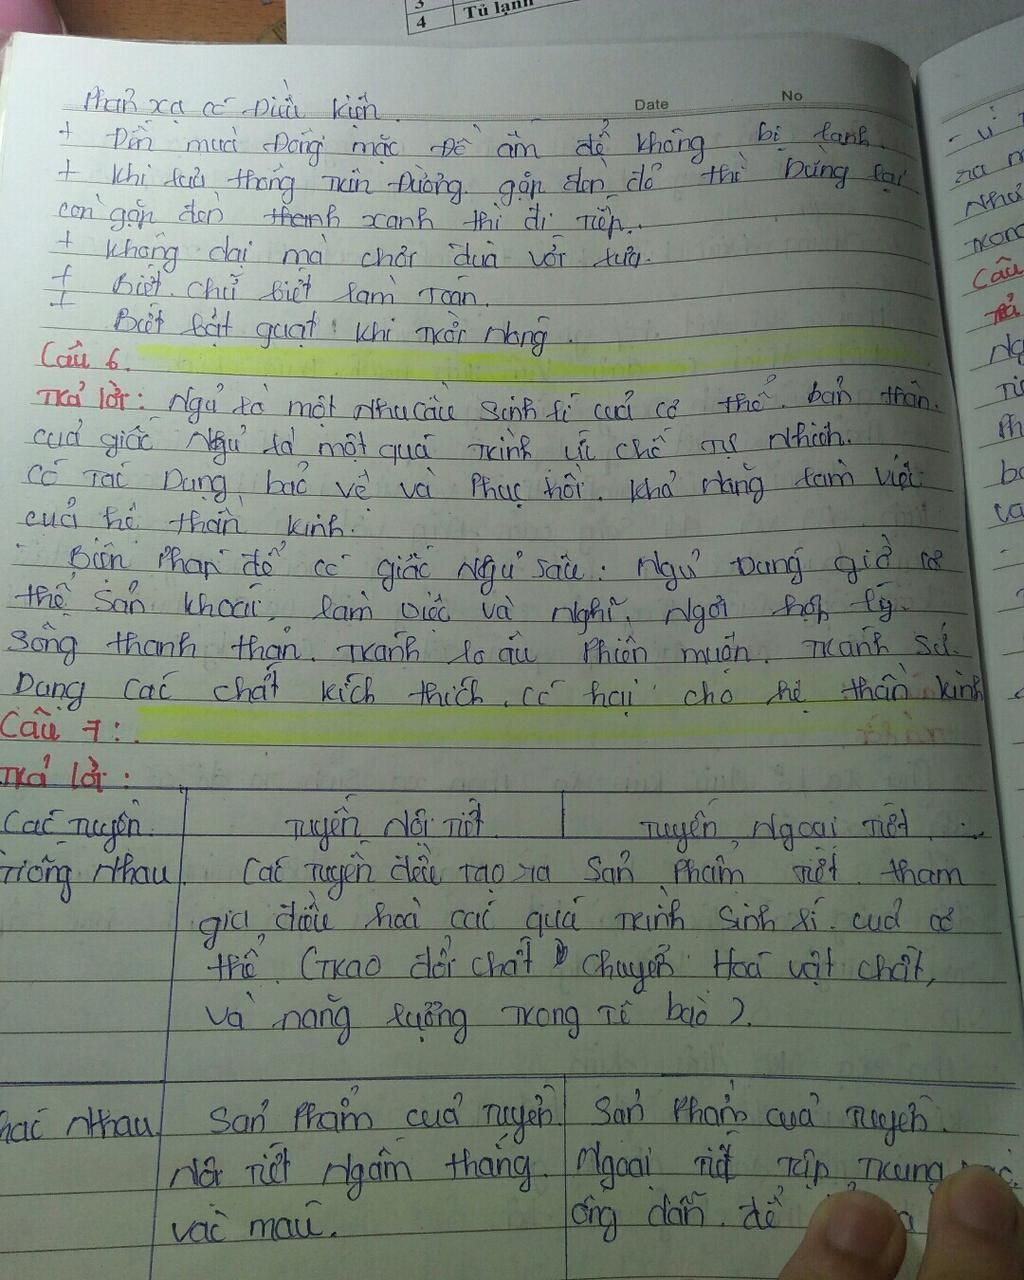 3
4 Tủ lạnh
Date No
Phản xạ có Điều kiện.
+ Đến mùa Đông mặc Đồ ấm để không bị lạnh.
+ Khi lưu thông trên Đường. gặp đèn đỏ thì Dừng lại
còn gặp đèn thanh xanh thì đi Tiếp..
+ không dại mà chơi đùa với lửa.
+ Biết chữ biết làm Toán.
+ Biết bật quạt khi trời nóng.
Câu 6.
Trả lời: Ngủ là một nhu cầu sinh lí của cơ thể. bản thân.
của giấc Ngủ là một quá trình ức chế tự nhiên.
Có Tác Dụng, bảo vệ và Phục hồi. khả năng làm việc
của hệ thần kinh.
- Biện Pháp để có giấc Ngủ sâu: Ngủ Đúng giờ cơ
thể sản khoái, làm việc và nghỉ, Ngơi hợp lý.
Sống thanh thản. tránh lo âu Phiền muộn. Tránh sử.
Dụng các chất kích thích. có hại cho hệ thần kinh
Câu 7:
Trả lời:
Các Tuyến. Tuyến Nội Tiết. Tuyến Ngoại Tiết.
Giống Nhau Các Tuyến đều Tạo ra Sản Phẩm Tiết. tham
gia điều hoà các quá trình sinh lí. của cơ
thể (Trao đổi chất, chuyển Hoá vật chất,
và năng lượng Trong Tế bào).
hác Nhau. Sản Phẩm của Tuyến Sản Phẩm của Tuyến.
Nội Tiết Ngấm thẳng. Ngoại Tiết Tập Trung
vào máu. ống dẫn. để